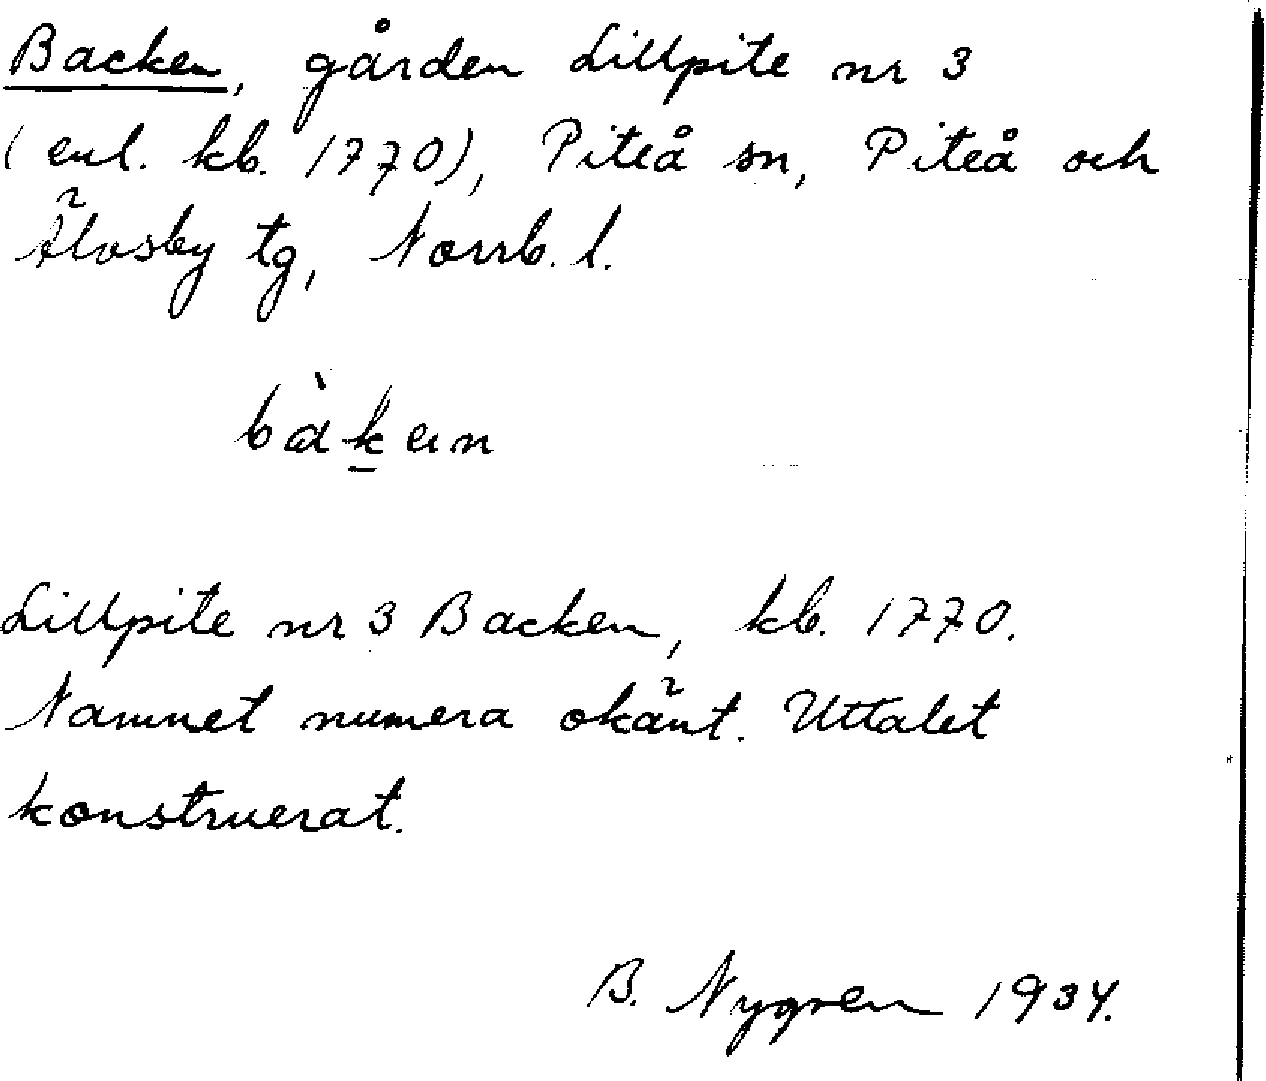 Backen, gården Lillpite nr 3
(enl. kb. 1770), Piteå sn, Piteå och
Älvsby tg, Norrb. l.
bàk̲en
Lillpite nr 3 Backen, kb. 1770.
Namnet numera okänt. Uttalet
konstruerat.
B. Nygren 1934.